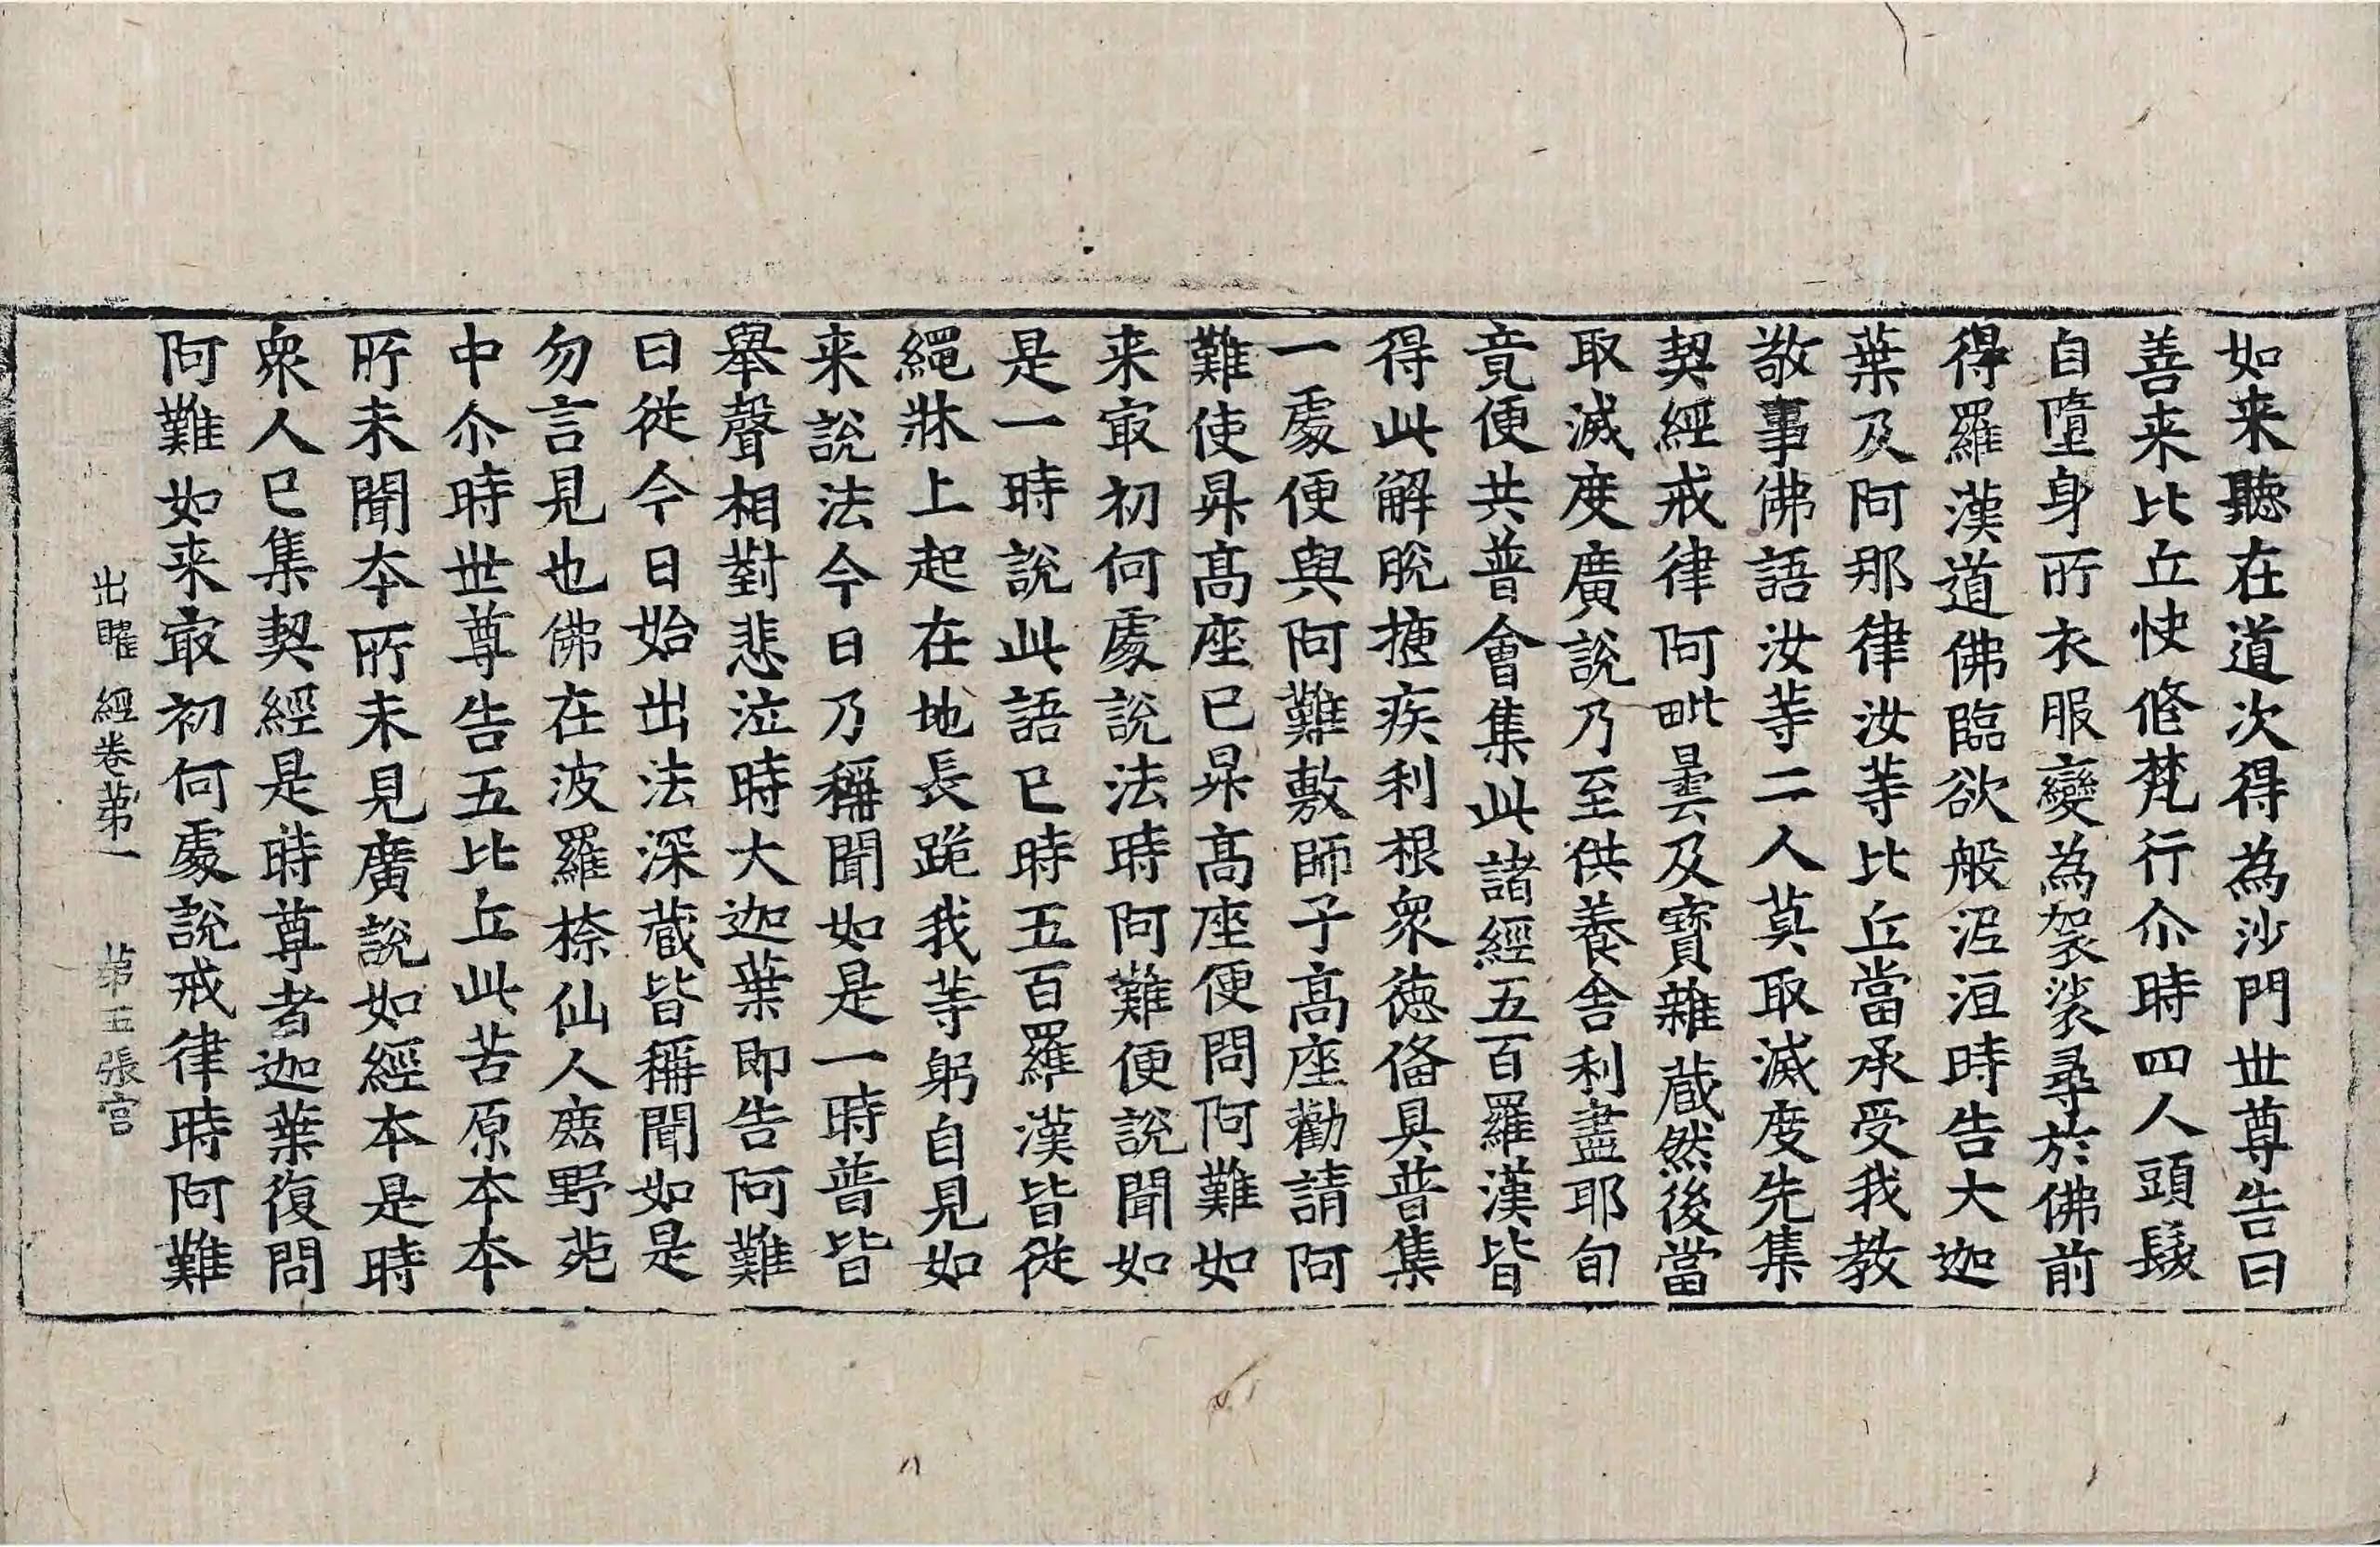 如来聽在道次得為沙門世尊告曰
善来比丘快修梵行尒時四人頭髮
自墮身所衣服變為袈裟尋於佛前
得羅漢道佛臨欲般泥洹時告大迦
葉及阿那律汝等比丘當承受我教
敬事佛語汝等二人莫取滅度先集
契經戒律阿毗曇及寶雜藏然後當
取滅度廣說乃至供養舍利盡耶旬
竟便共普會集此諸經五百羅漢皆
得此解脫揵疾利根衆德俻具普集
一處便與阿難敷師子高座勸請阿
難使昇高座已昇高座便問阿難如
来㝡初何處說法時阿難便說聞如
是一時說此語已時五百羅漢皆從
繩牀上起在地長跪我等躬自見如
来說法今日乃稱聞如是一時普皆
舉聲相對悲泣時大迦葉即告阿難
曰從今日始出法深藏皆稱聞如是
勿言見也佛在波羅㮈仙人鹿野苑
中尒時世尊告五比丘此苦原本本
所未聞本所未見廣說如經本是時
衆人已集契經是時尊者迦葉復問
阿難如来㝡初何處說戒律時阿難
出曜經卷第一 第五張宫